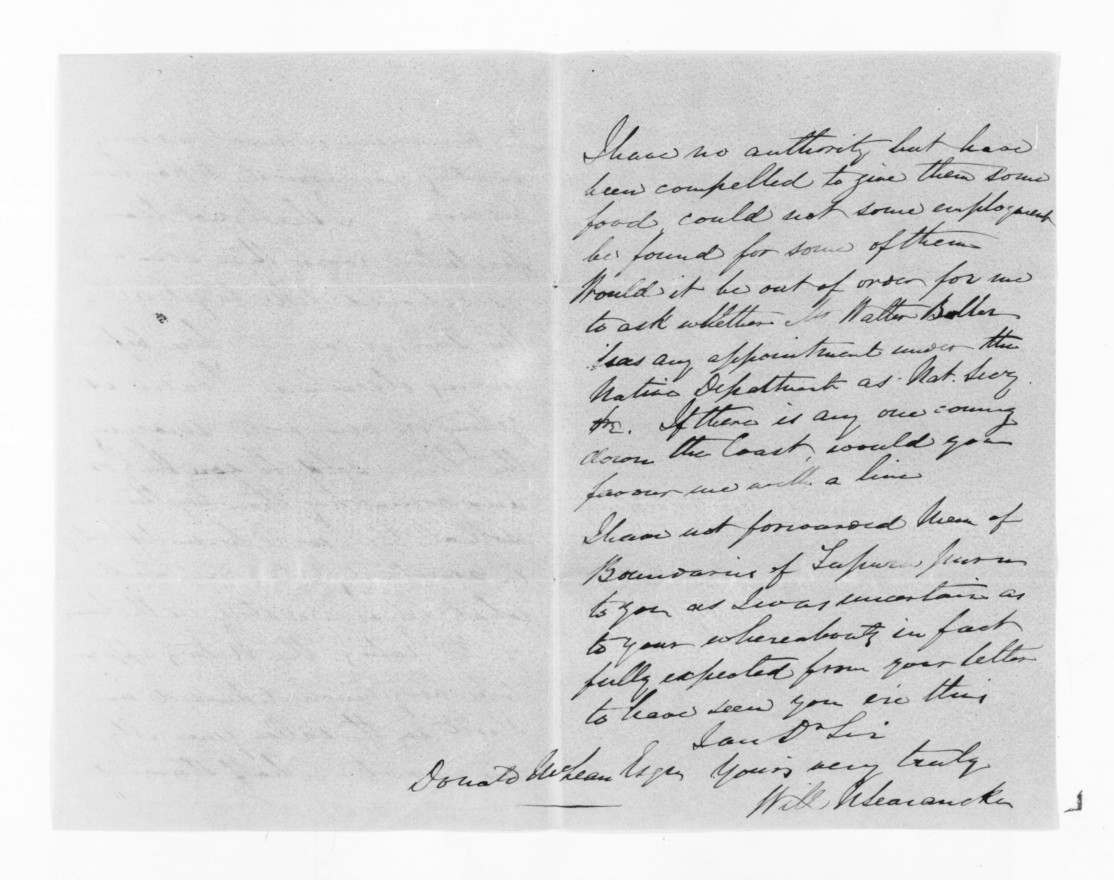 I have no authority but have
been compelled to give them some
food, could not some employment
be found for some of them
Would it be out of order for me
to ask whether Mr Walter Buller
has any appointment under the
Native Department as Nat. Secy.
&c. If there is any one coming
down the Coast, would you
favour me with a line
I have not forwarded Mem of
Boundaries of
to you as I was uncertain as
to your whereabouts, in fact
fully expected from your letter
to have seen you ere this
I am Dr Sir
Yours very truly
Will N Searancke
Donald McLean Esqre